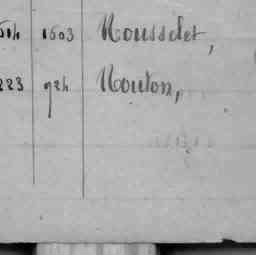 1603 Rousselet,
223 924 Routon,